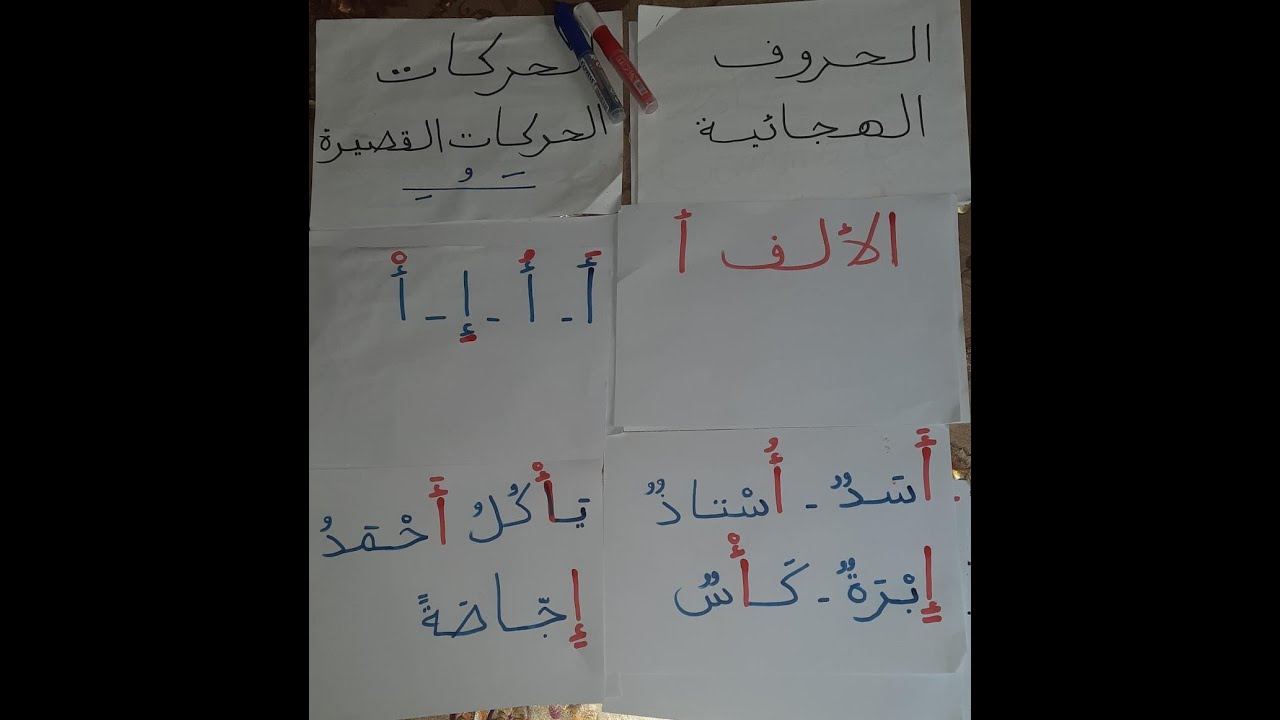 الحروف
الهجائية
الحركات
الحركات القصيرة
ـَ ـُ ـِ
الألف أ
أَ - أُ - إِ - أْ
أَسَدٌ - أُسْتاذٌ
إِبْرَةٌ - كَأْسٌ
يَأْكُلُ أَحْمَدُ
إِجّاصَةً